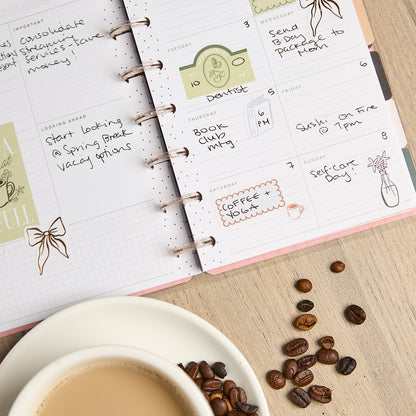 IMPORTANT
consolidate
streaming
services - save
money
LOOKING AHEAD
start looking
@ Spring Break
vacay options
TUESDAY
3
10
Dentist
WEDNESDAY
Send
B.Day
package to
Mom
THURSDAY
5
Book
Club
mtg
6 PM
FRIDAY
6
Sushi On Fire
@ 7pm
SATURDAY
7
COFFEE +
YOGA
SUNDAY
8
Self-care
Day!